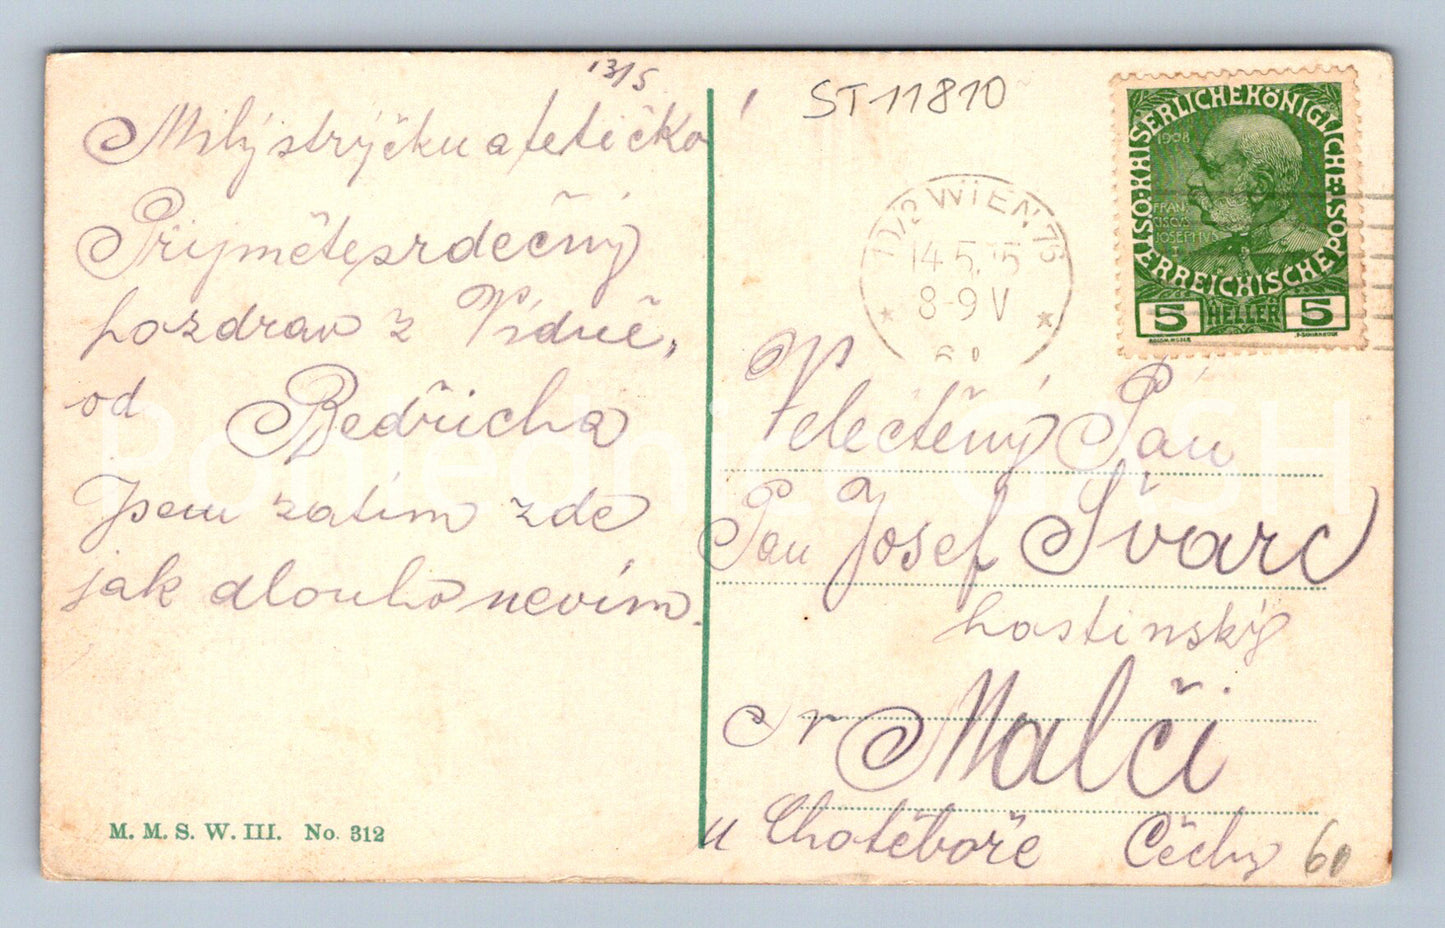 13/5
Milý strýčku a tetičko!
Přijměte srdečný
pozdrav z Vídně,
od Bedřicha
Jsem zatím zde
jak dlouho nevím.
M. M. S. W. III. No. 312
ST 11810
10/2 WIEN 75
14.5.15
8-9 V
ÖSTERREICHISCHE POST KAISERLICHE KÖNIGLICHE
1908
FRAN
CISCVS
IOSEPHVS
5 HELLER 5
Velectěný Pán
Pan Josef Švarc
hostinský
v Malči
u Chotěboře Čechy
60
Pohlednice GASH